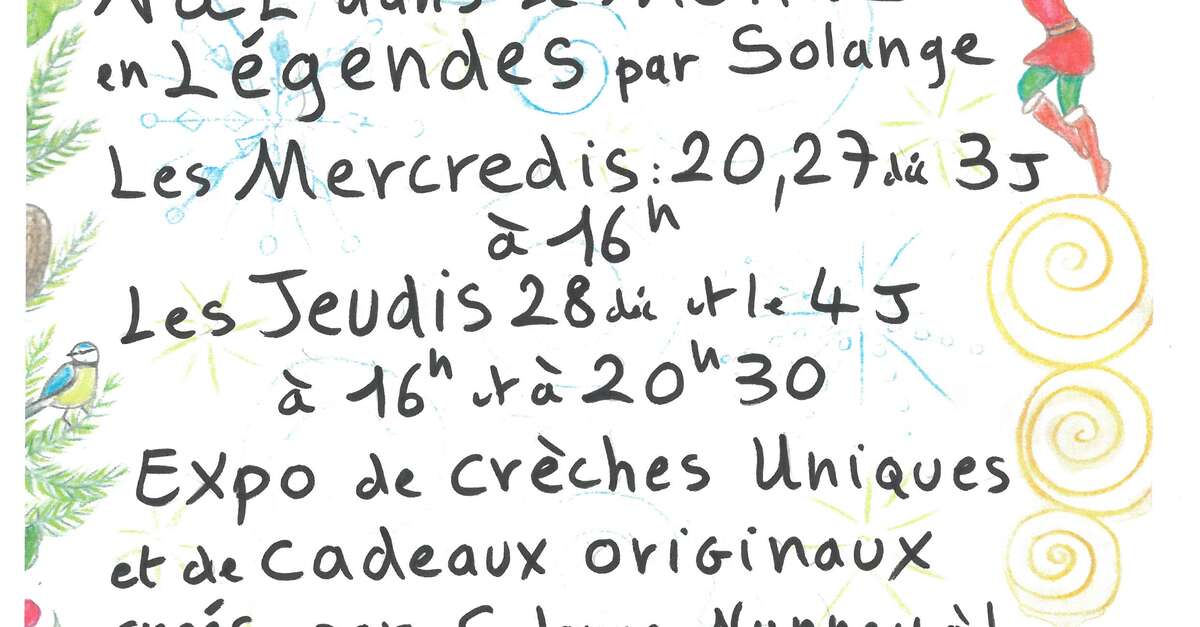 Noël dans le Monde
en Légendes par Solange
Les Mercredis : 20, 27 déc 3 J
à 16h
Les Jeudis 28 déc et le 4 J
à 16h et à 20h30
Expo de crèches Uniques
et de cadeaux originaux
par